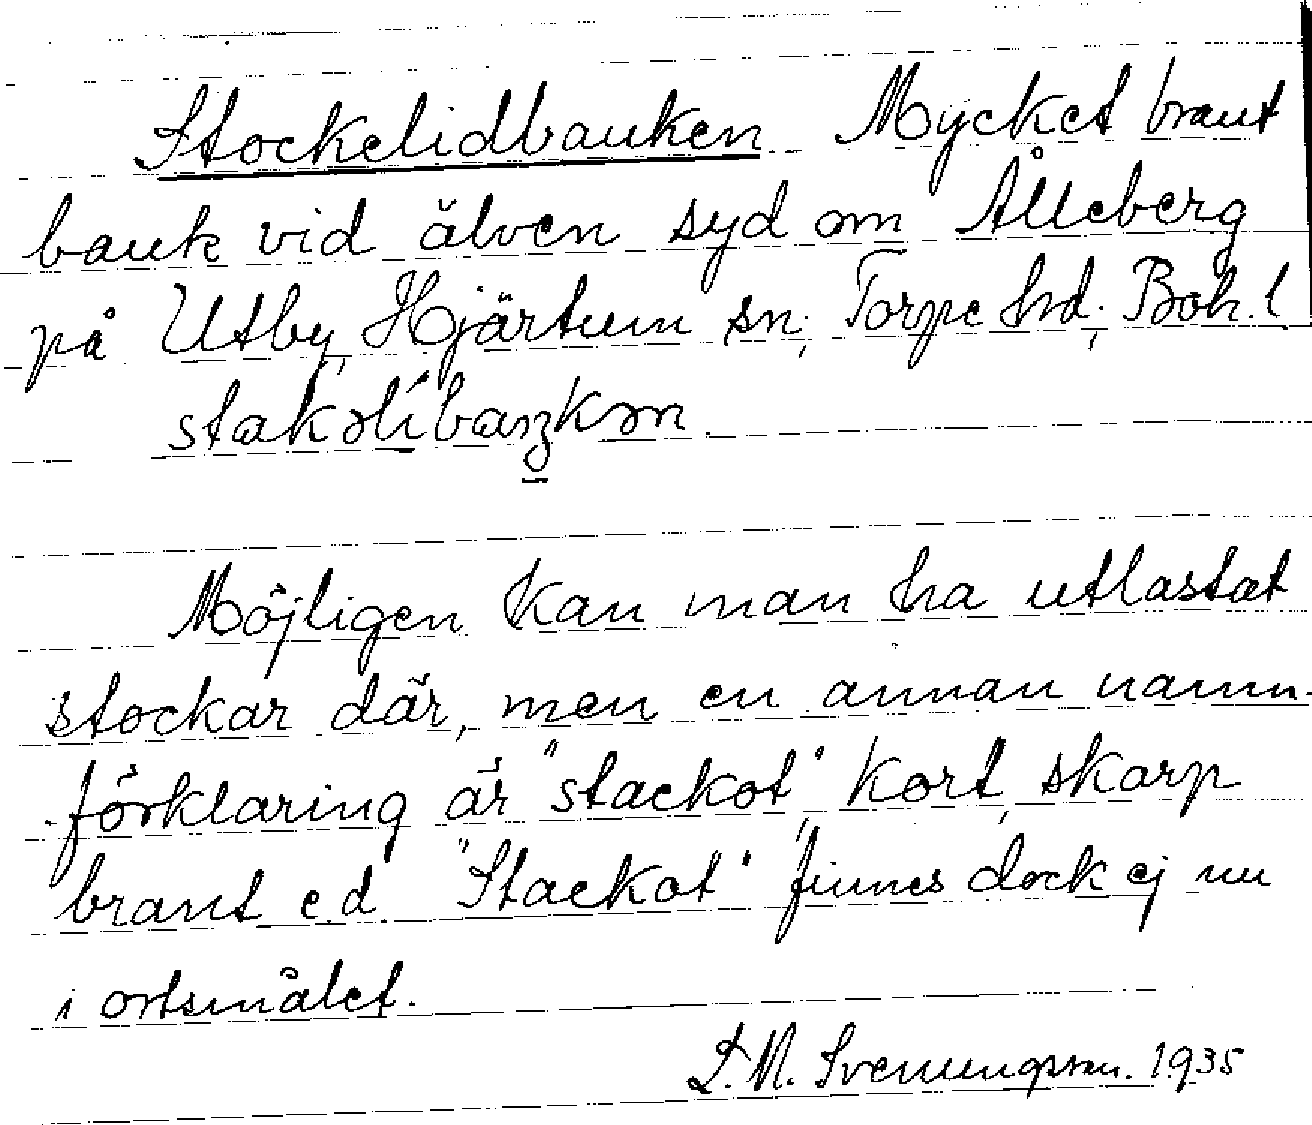 Stockelidbanken Mycket brant
bank vid älven syd om Ålleberg
på Utby, Hjärtum sn; Torpe hd; Boh. l
Möjligen kan man ha utlastat
stockar där, men en annan namn-
förklaring är "stackot", kort, skarp
brant e.d. "Stackot" finnes dock ej nu
i ortsmålet.
S.M. Svenungsson. 1935